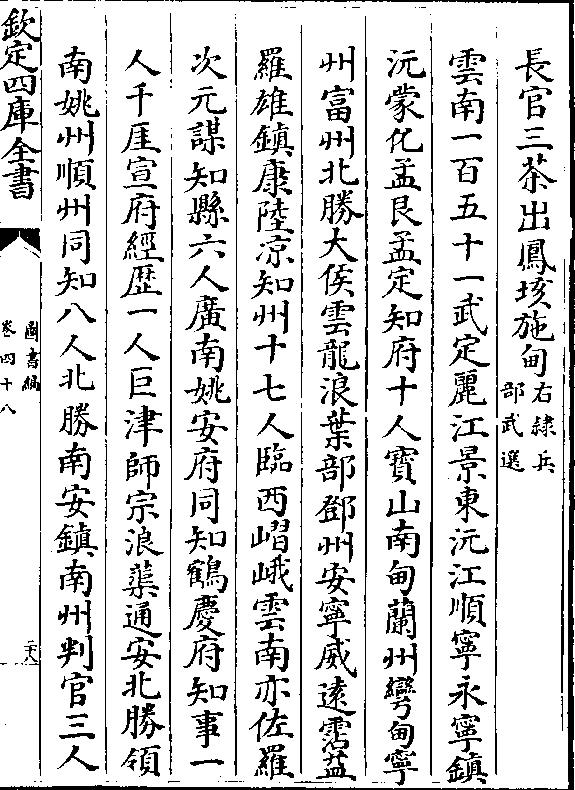 長官三茶出鳳垓施甸右隷兵部武選
雲南一百五十一武定麗江景東沅江順寧永寧鎮
沅蒙化孟艮孟定知府十人寶山南甸蘭州彎甸寧
州富州北勝大侯雲龍浪葉部鄧州安寧威逺霑益
羅雄鎮康陸凉知州十七人臨西嶍峨雲南亦佐羅
次元謀知縣六人廣南姚安府同知鶴慶府知事一
人千厓宣府經歴一人巨津師宗浪蕖通安北勝領
南姚州順州同知八人北勝南安鎮南州判官三人
欽定四庫全書
圖書編
卷四十八
二十八